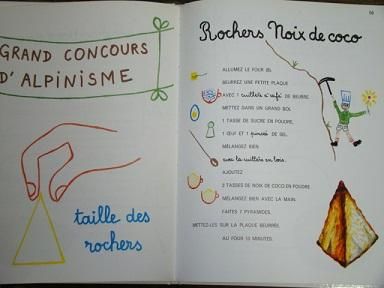 GRAND CONCOURS
D'ALPINISME
taille des
rochers
66
Rochers Noix de coco
ALLUMEZ LE FOUR
BEURREZ UNE PETITE PLAQUE
AVEC 1 cuillère à café DE BEURRE.
METTEZ DANS UN GRAND BOL
1 TASSE DE SUCRE EN POUDRE,
1 ŒUF ET 1 pincée DE SEL.
MÉLANGEZ BIEN
avec la cuillère en bois.
AJOUTEZ
2 TASSES DE NOIX DE COCO EN POUDRE.
MÉLANGEZ BIEN AVEC LA MAIN.
FAITES 7 PYRAMIDES.
METTEZ-LES SUR LA PLAQUE BEURRÉE,
AU FOUR 10 MINUTES.